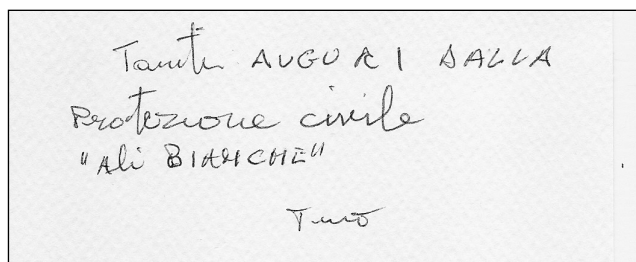 Tanti AUGURI DALLA
Protezione civile
"Ali BIANCHE"